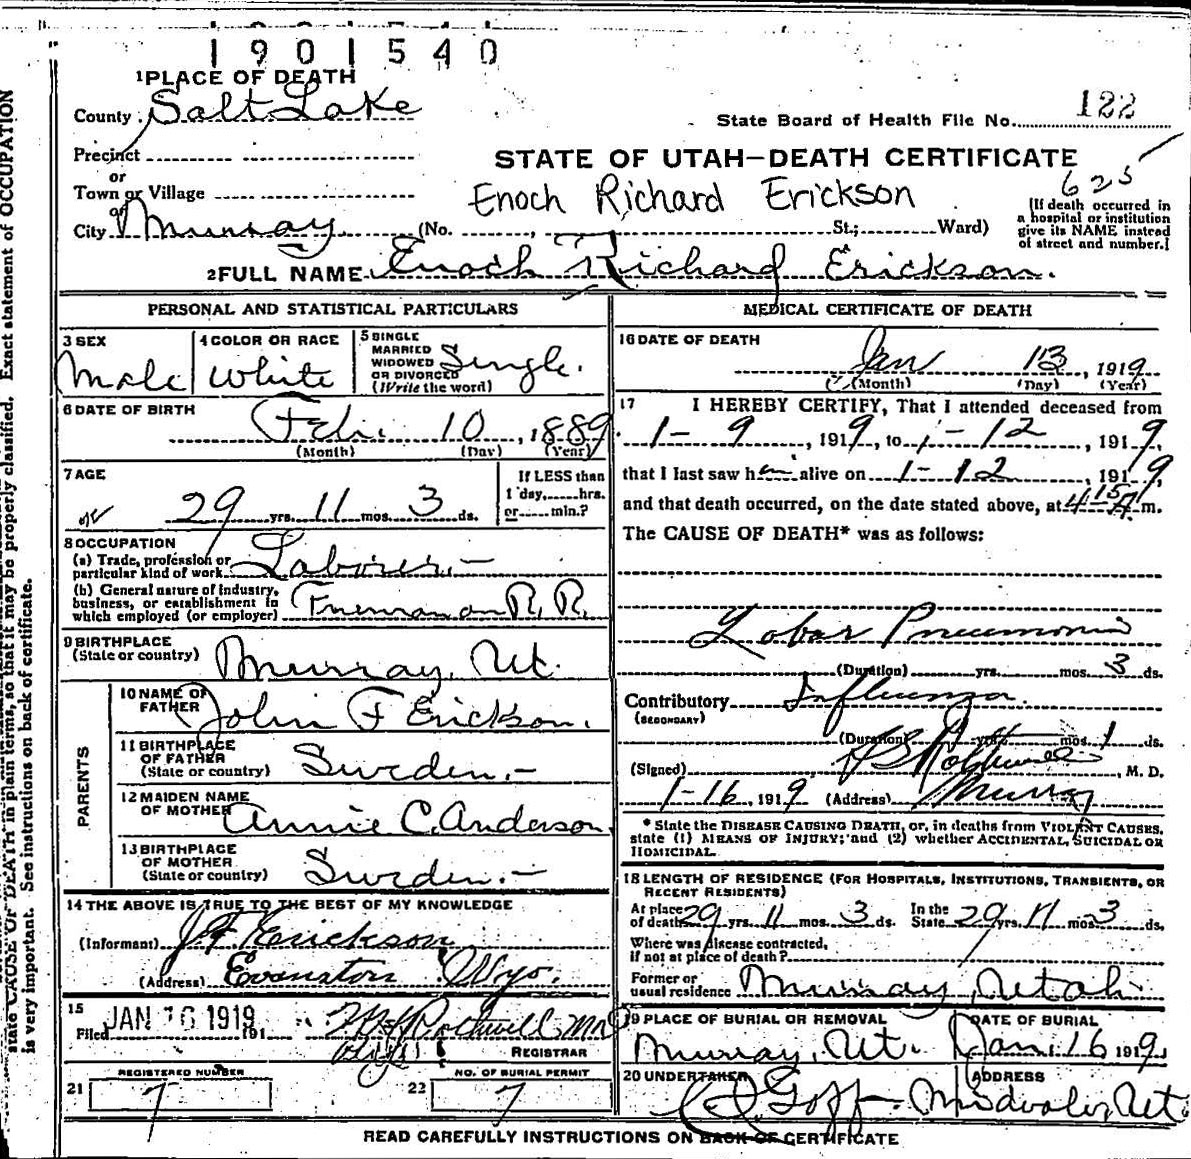 1901540
1 PLACE OF DEATH
County Salt Lake
State Board of Health File No. 122
Precinct
or
STATE OF UTAH—DEATH CERTIFICATE
Town or Village
Enoch Richard Erickson
625
or
City Murray (No. , St.; Ward)
[If death occurred in
a hospital or institution
give its NAME instead
of street and number.]
2 FULL NAME Enoch Richard Erickson.
PERSONAL AND STATISTICAL PARTICULARS
3 SEX
Male
4 COLOR OR RACE
White
5 SINGLE
MARRIED
WIDOWED
OR DIVORCED
(Write the word)
Single.
6 DATE OF BIRTH
Feb. 10, 1889
(Month) (Day) (Year)
7 AGE
29 yrs. 11 mos. 3 ds.
If LESS than
1 day, hrs.
or min.?
8 OCCUPATION
(a) Trade, profession or
particular kind of work Laborer.—
(b) General nature of industry,
business, or establishment in
which employed (or employer) Fireman on R. R.
9 BIRTHPLACE
(State or country) Murray, Ut.
PARENTS
10 NAME OF
FATHER John F Erickson.
11 BIRTHPLACE
OF FATHER
(State or country) Sweden.—
12 MAIDEN NAME
OF MOTHER Annie C. Anderson
13 BIRTHPLACE
OF MOTHER
(State or country) Sweden.—
14 THE ABOVE IS TRUE TO THE BEST OF MY KNOWLEDGE
(Informant) J F Erickson
(Address) Evanston Wyo.
15
Filed JAN 16 1919 191
Rothwell MD
REGISTRAR
REGISTERED NUMBER
21 7
NO. OF BURIAL PERMIT
22 7
MEDICAL CERTIFICATE OF DEATH
16 DATE OF DEATH
Jan 13, 1919
(Month) (Day) (Year)
17 I HEREBY CERTIFY, That I attended deceased from
1-9, 1919, to 1-12, 1919,
that I last saw him alive on 1-12, 1919,
and that death occurred, on the date stated above, at 4-15 A m.
The CAUSE OF DEATH* was as follows:
Lobar Pneumonia
(Duration) yrs. mos. 3 ds.
Contributory Influenza
(SECONDARY)
(Duration) yrs. mos. 1 ds.
(Signed) Rothwell, M. D.
1-16, 1919 (Address) Murray
* State the DISEASE CAUSING DEATH, or, in deaths from VIOLENT CAUSES,
state (1) MEANS OF INJURY; and (2) whether ACCIDENTAL, SUICIDAL OR
HOMICIDAL.
18 LENGTH OF RESIDENCE (FOR HOSPITALS, INSTITUTIONS, TRANSIENTS, OR
RECENT RESIDENTS)
At place
of death 29 yrs. 11 mos. 3 ds.
In the
State 29 yrs. 11 mos. 3 ds.
Where was disease contracted,
if not at place of death?
Former or
usual residence Murray, Utah
19 PLACE OF BURIAL OR REMOVAL
Murray, Ut.
DATE OF BURIAL
Jan. 16 1919
20 UNDERTAKER
Goff.
ADDRESS
Midvale, Ut
READ CAREFULLY INSTRUCTIONS ON BACK OF CERTIFICATE
state CAUSE OF DEATH in plain terms, so that it may be properly classified. Exact statement of OCCUPATION
is very important. See instructions on back of certificate.